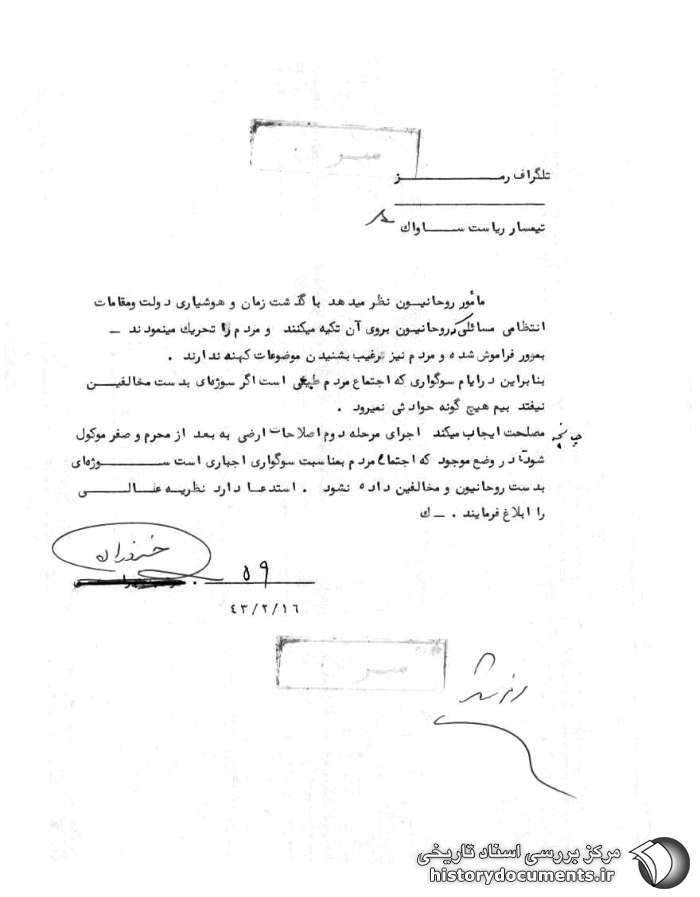 سری
تلگراف رمز
تیمسار ریاست ساواک
مأمور روحانیون نظر میدهد با گذشت زمان و هوشیاری دولت ومقامات
انتظامی مسائلی که روحانیون بروی آن تکیه میکنند و مردم را تحریک مینمودند ـ
بمرور فراموش شده و مردم نیز ترغیب بشنیدن موضوعات کهنه ندارند .
بنابراین در ایام سوگواری که اجتماع مردم طبیعی است اگر سوژه‌ای بدست مخالفین
نیفتد بیم هیچ گونه حوادثی نمیرود .
چنانچه مصلحت ایجاب میکند اجرای مرحله دوم اصلاحات ارضی به بعد از محرم و صفر موکول
شود تا در وضع موجود که اجتماع مردم بمناسبت سوگواری اجباری است سوژه‌ای
بدست روحانیون و مخالفین داده نشود . استدعا دارد نظریه عالی
را ابلاغ فرمایند . ـ ک
۵۹
۴۳/۲/۱۶
سری
رمز شد
مرکز بررسی اسناد تاریخی
historydocuments.ir